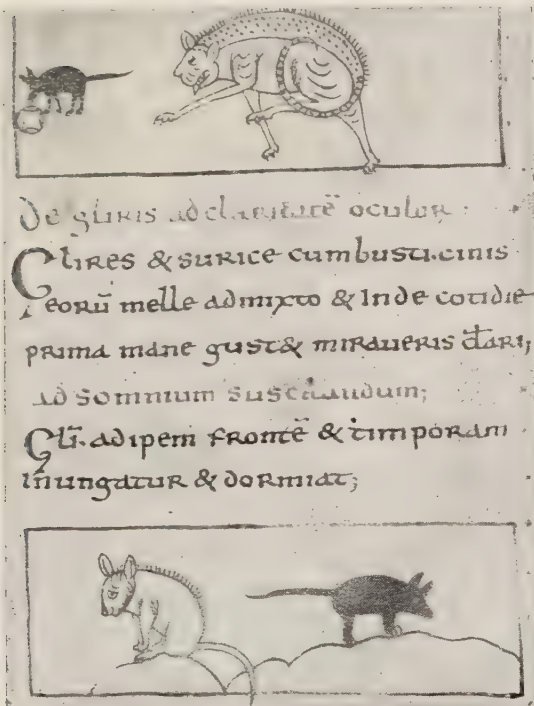 De gliris ad claritatē oculor:
Glires & surice cumbusti. cinis
eorū melle admixto & inde cotidie
prima mane gust& miraueris clari;
ad somnium suscitandum;
Gli. adipem frontē & timporam
inungatur & dormiat;